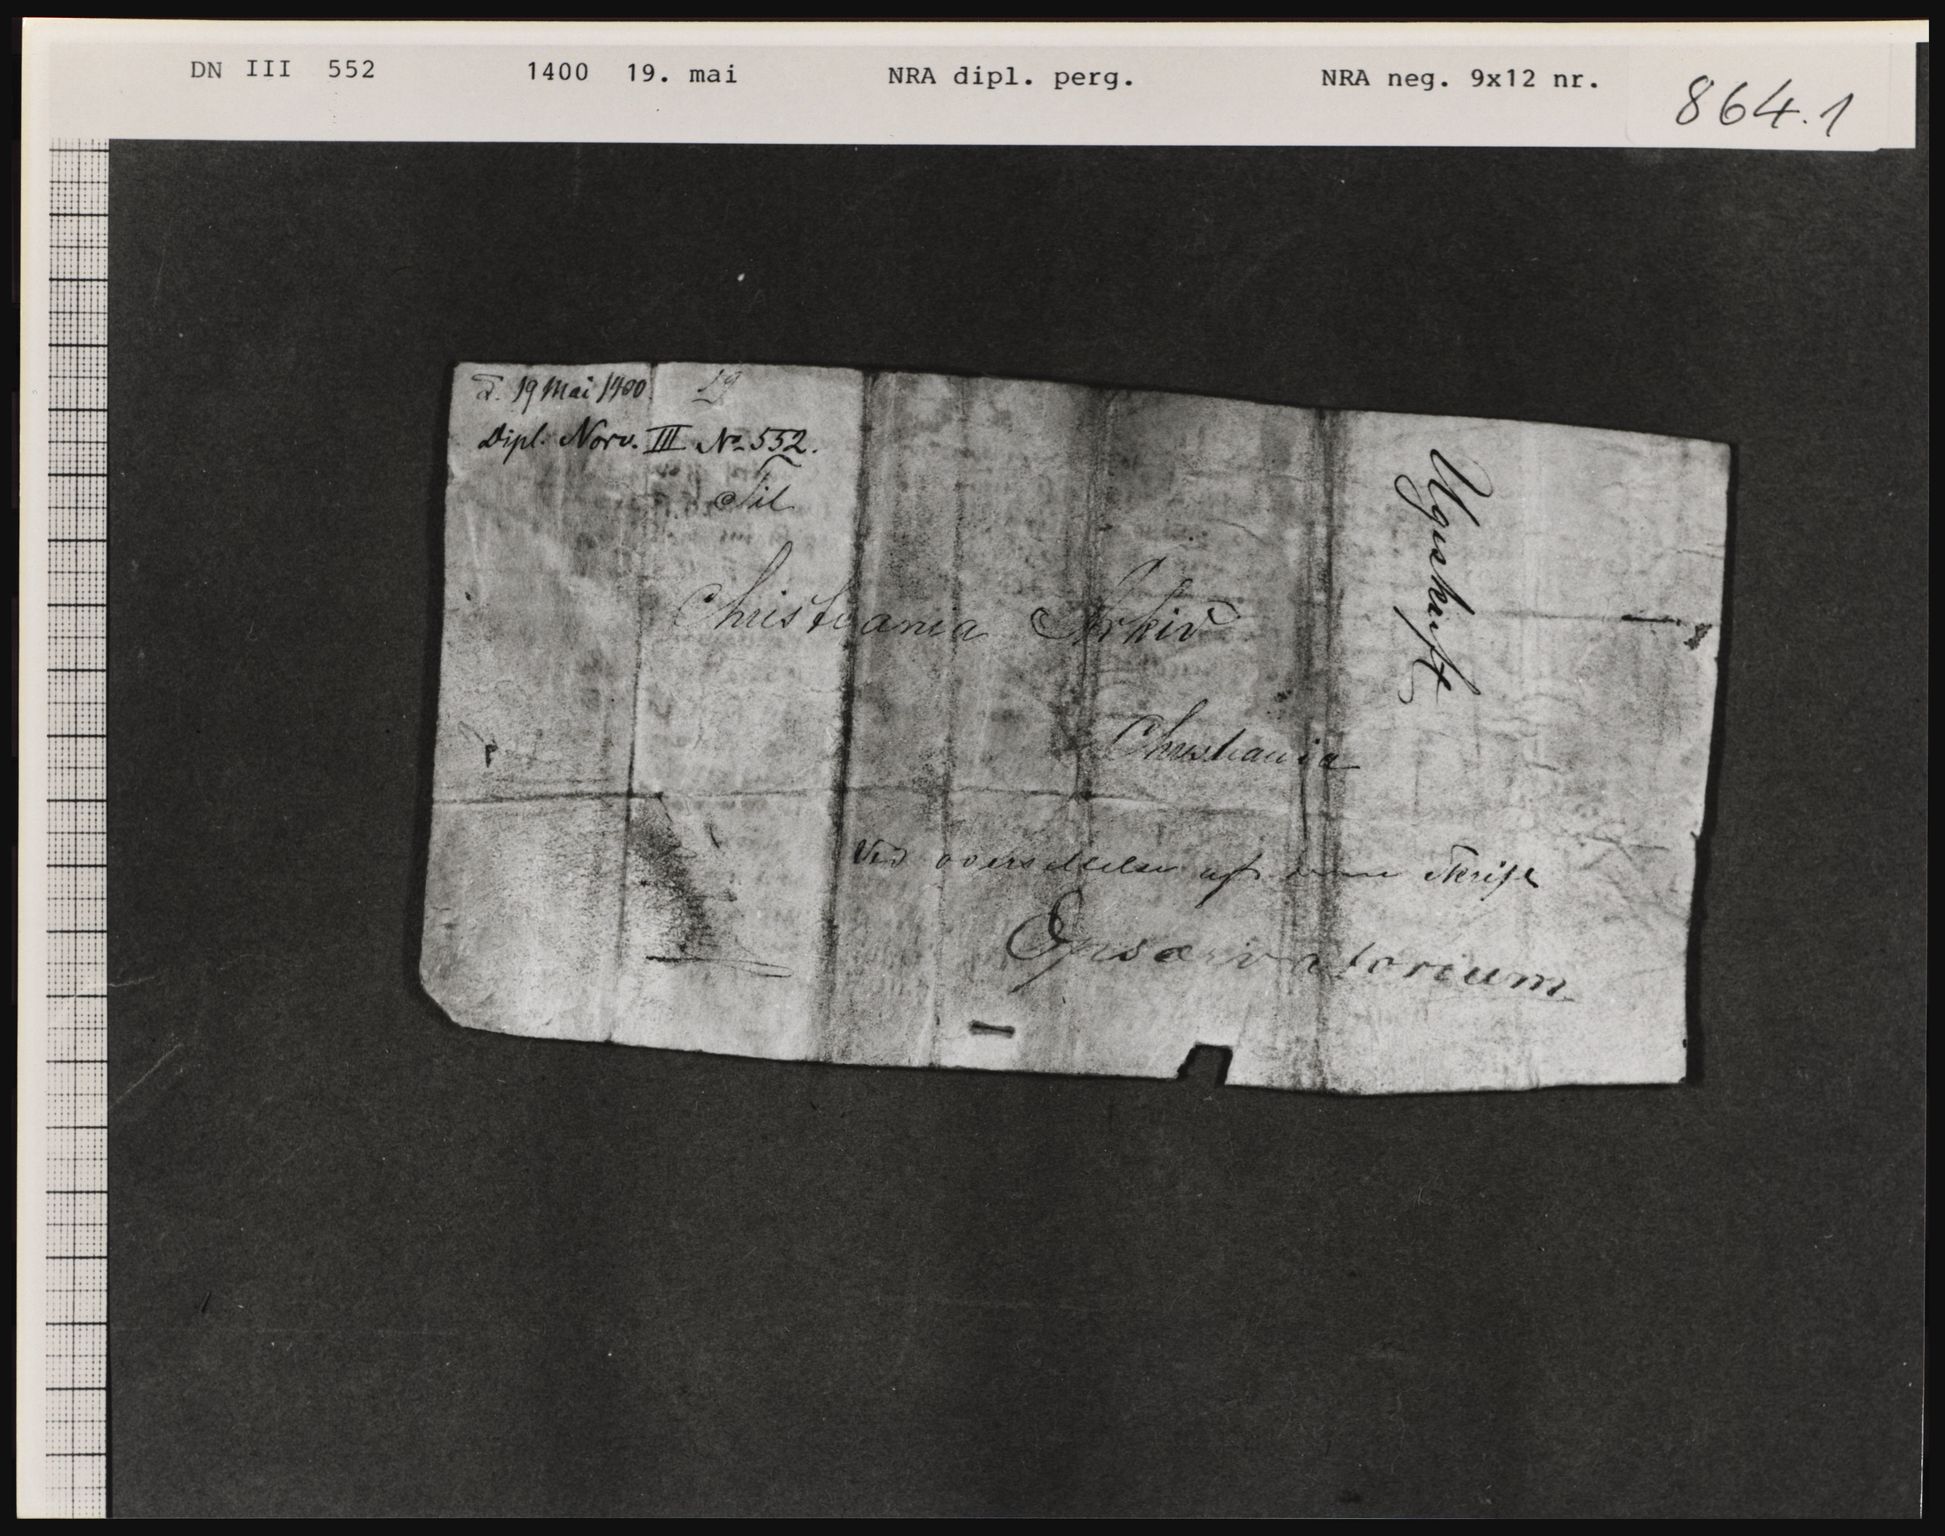 DN III 552 1400 19. mai NRA dipl. perg. NRA neg. 9x12 nr. 864.1
19 Mai 1400.
Dipl. Norv. III No 552.
Til
Christiania Arkiv
Christiania
Ved oversettelse af denne Skrift
Opsærvatorium